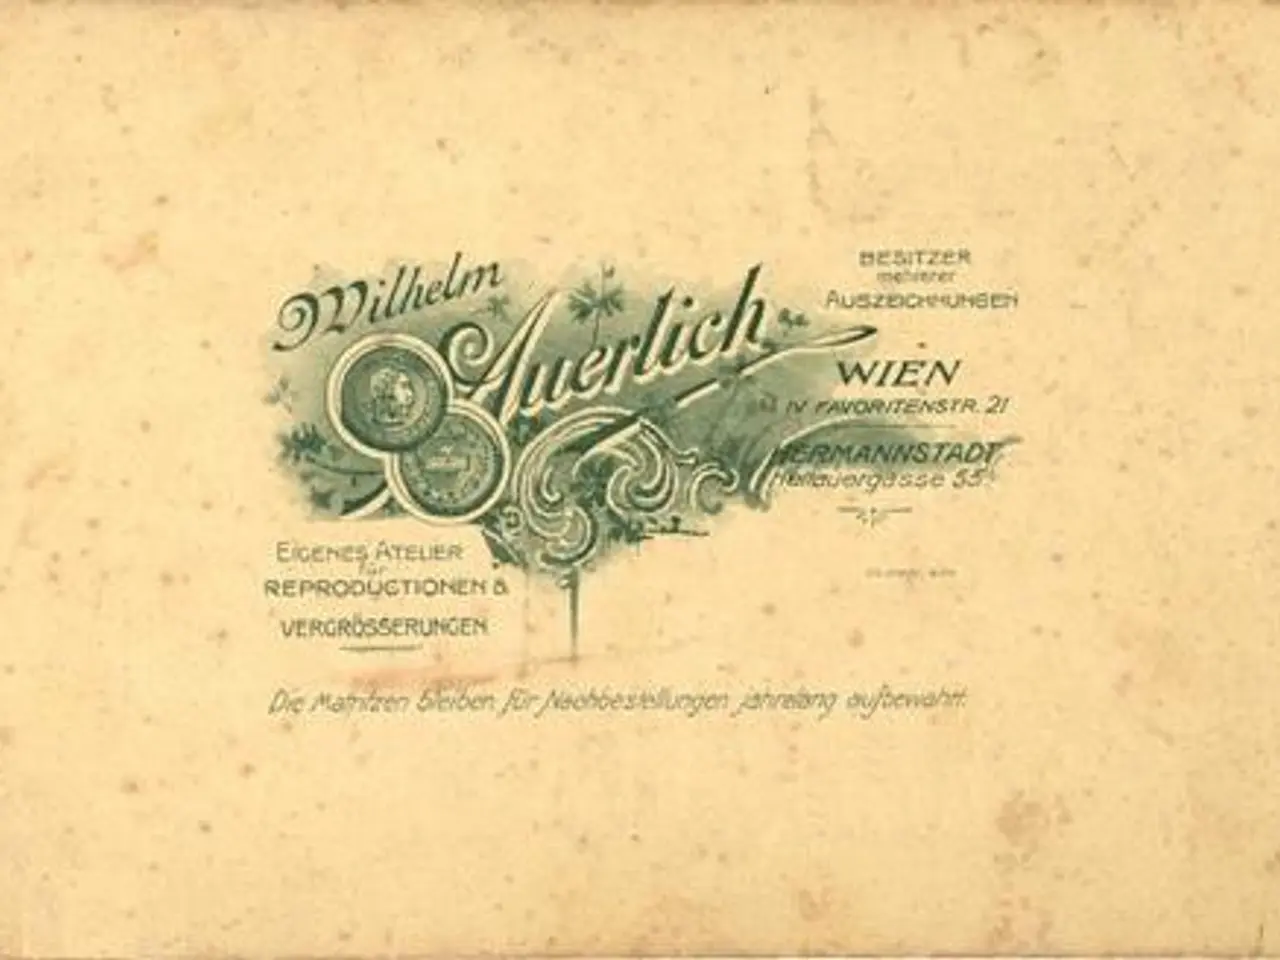 Wilhelm
Auerlich
BESITZER
mehrerer
AUSZEICHNUNGEN
WIEN
IV FAVORITENSTR. 21
HERMANNSTADT
Heltauergasse 55
EIGENES ATELIER
für
REPRODUCTIONEN &
VERGRÖSSERUNGEN
Die Matritzen bleiben für Nachbestellungen jahrelang aufbewahrt.